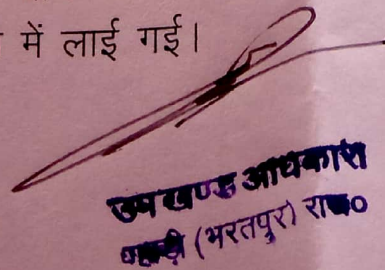 में लाई गई।
उप खण्ड अधिकारी
पहाड़ी (भरतपुर) राज०